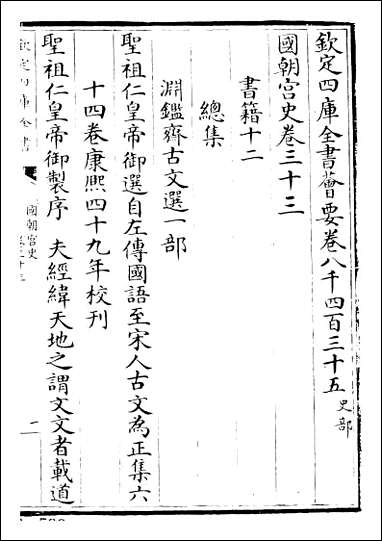 欽定四庫全書薈要卷八千四百三十五 史部
國朝宫史卷三十三
書籍十二
總集
淵鑑齊古文選一部
聖祖仁皇帝御選自左傳國語至宋人古文為正集六
十四卷康熙四十九年校刊
聖祖仁皇帝御製序 夫經緯天地之謂文文者載道
欽定四庫全書
國朝宫史
卷三十三